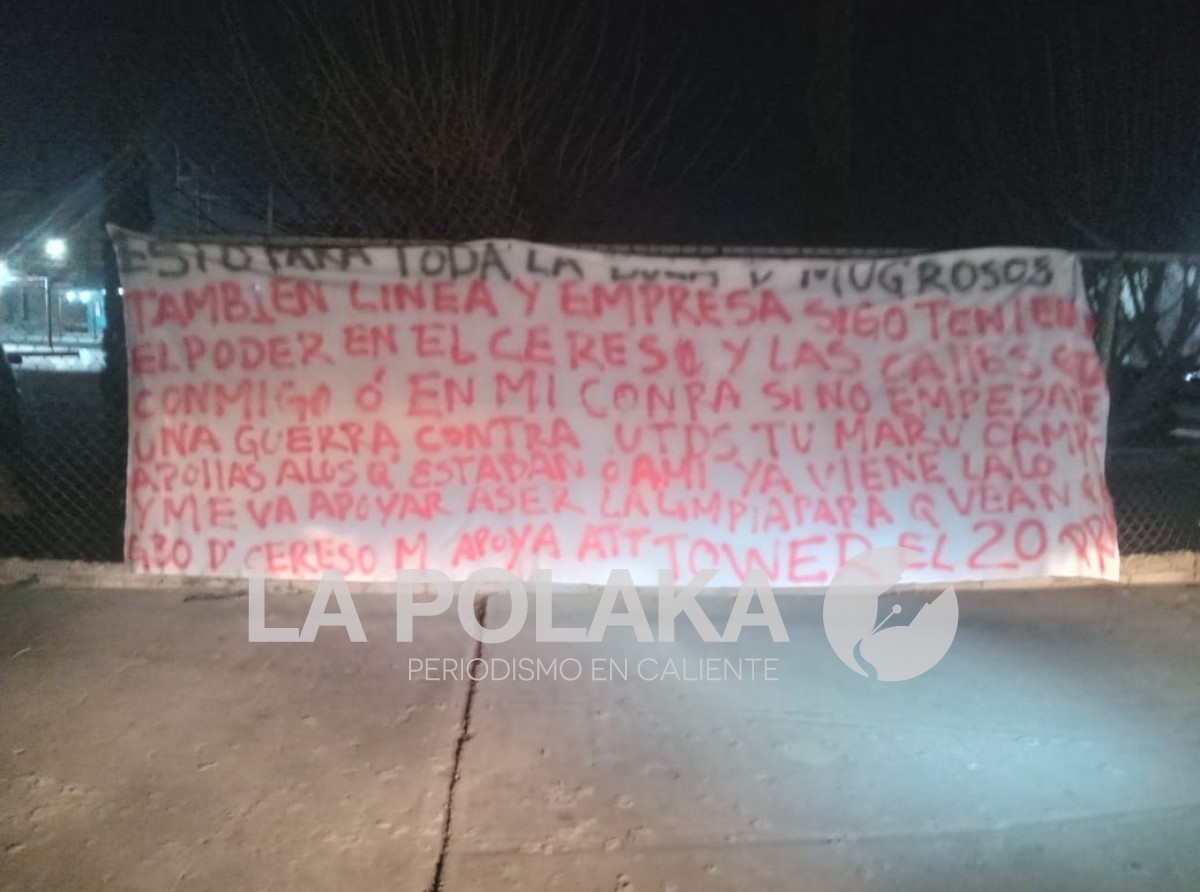 ESTO PARA TODA LA D MUGROSOS
TAMBIEN LINEA Y EMPRESA SIGO TENIEN
EL PODER EN EL CERESO Y LAS CALLES
CONMIGO Ó EN MI CONRA SI NO EMPEZARE
UNA GUERRA CONTRA UTDS TU MARU CAMPO
APOLLAS ALOS Q ESTABAN O AMI YA VIENE LALO
Y ME VA APOYAR ASER LA LIMPIA PAPA Q VEAN Q
D CERESO M APOYA ATT TOWER EL 20
LA POLAKA
PERIODISMO EN CALIENTE